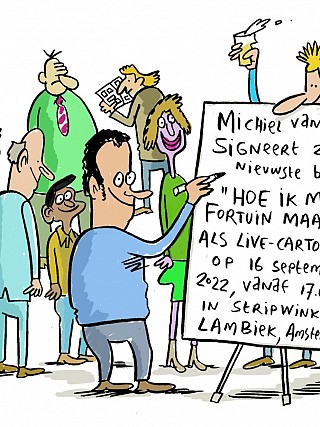 Michiel van
Signeert z
nieuwste b
"HOE IK M
FORTUIN MAA
ALS LIVE-CARTO
OP 16 SEPTEM
2022, VANAF 17.
IN STRIPWINK
LAMBIEK, Amste